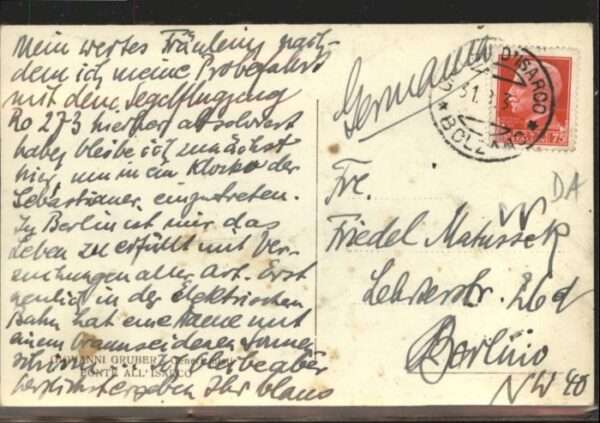 Mein wertes Fräulein, nach-
dem ich meine Probefahrt
mit dem Segelflugzeug
Ro 27-3 hierher absolviert
habe, bleibe ich zunächst
hier, um in ein Kloster der
Sebastianer einzutreten.
In Berlin ist mir das
Leben zu erfüllt mit Ver-
suchungen aller Art. Erst
neulich in der Elektrischen
Bahn hat eine Dame mit
einem braunseidenen
bleibe aber
herzlichst ergeben Ihr Claus
GIOVANNI GRUBER, Generi misti
PONTE ALL'ISARCO
Germania
D'ISARCO
31.
* BOLZANO *
75
DA
Fr.
Friedel Matussek
Lehrterstr. 26d
Berlino
NW 40